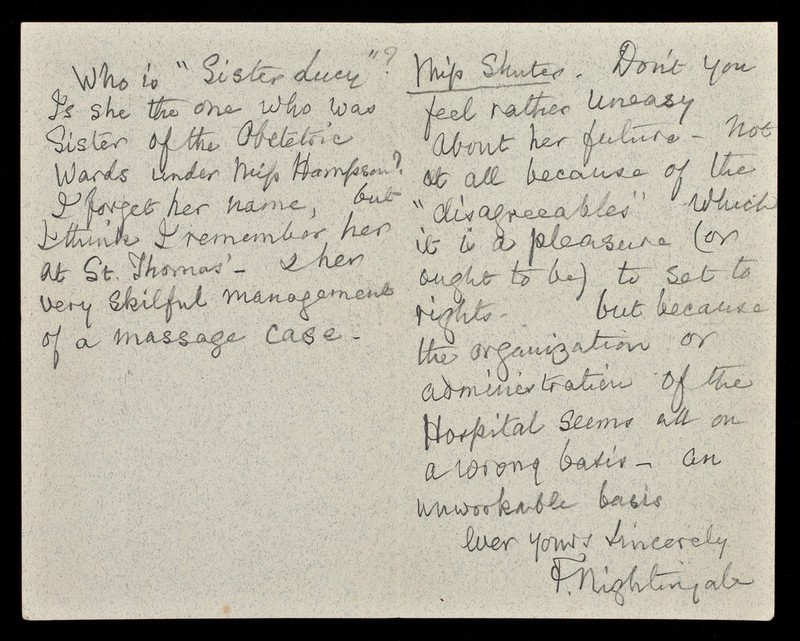 Who is "Sister Lucy"?
Is she the one who was
Sister of the Obstetric
Wards under Miss Hampson?
I forget her name, but
I think I remember her
at St. Thomas' - & her
very skilful management
of a massage case -
Miss Shuter. Don't you
feel rather uneasy
about her future - Not
at all because of the
"disagreeables" which
it is a pleasure (or
ought to be) to set to
rights - but because
the organization or
administration of the
Hospital seems all on
a wrong basis - an
unworkable basis
ever yours sincerely
F. Nightingale